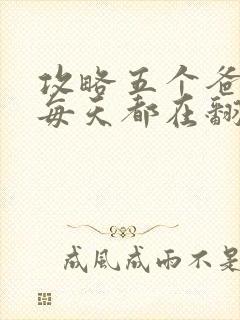 攻略五个爸
每天都在翻
成風成雨不是